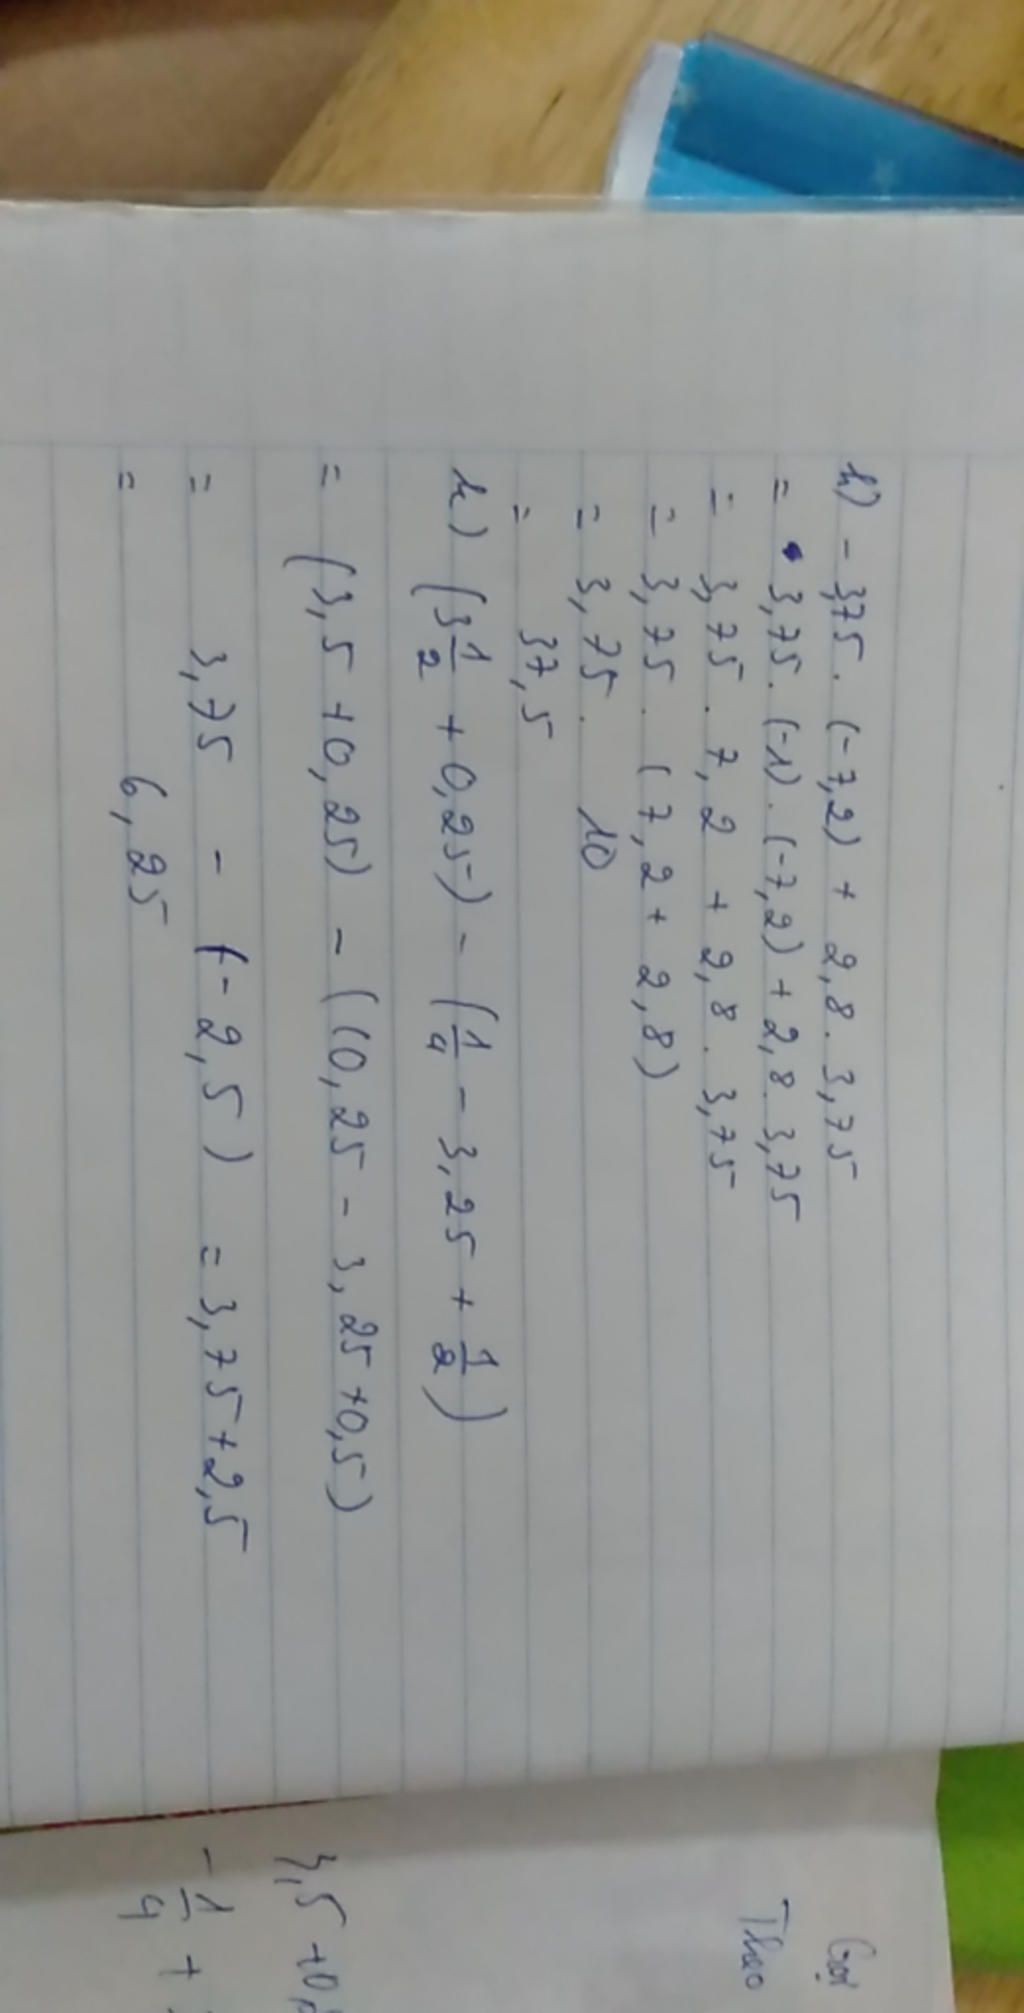 h) - 3,75 . (-7,2) + 2,8 . 3,75
= 3,75 . (-1) . (-7,2) + 2,8 . 3,75
= 3,75 . 7,2 + 2,8 . 3,75
= 3,75 . (7,2 + 2,8)
= 3,75 . 10
= 37,5
k) (3 1/2 + 0,25) - (1/4 - 3,25 + 1/2)
= (3,5 + 0,25) - ((0,25 - 3,25 + 0,5)
= 3,75 - (-2,5) = 3,75 + 2,5
= 6,25
Gọi
Theo
3,5 + 0,
- 1/4 +